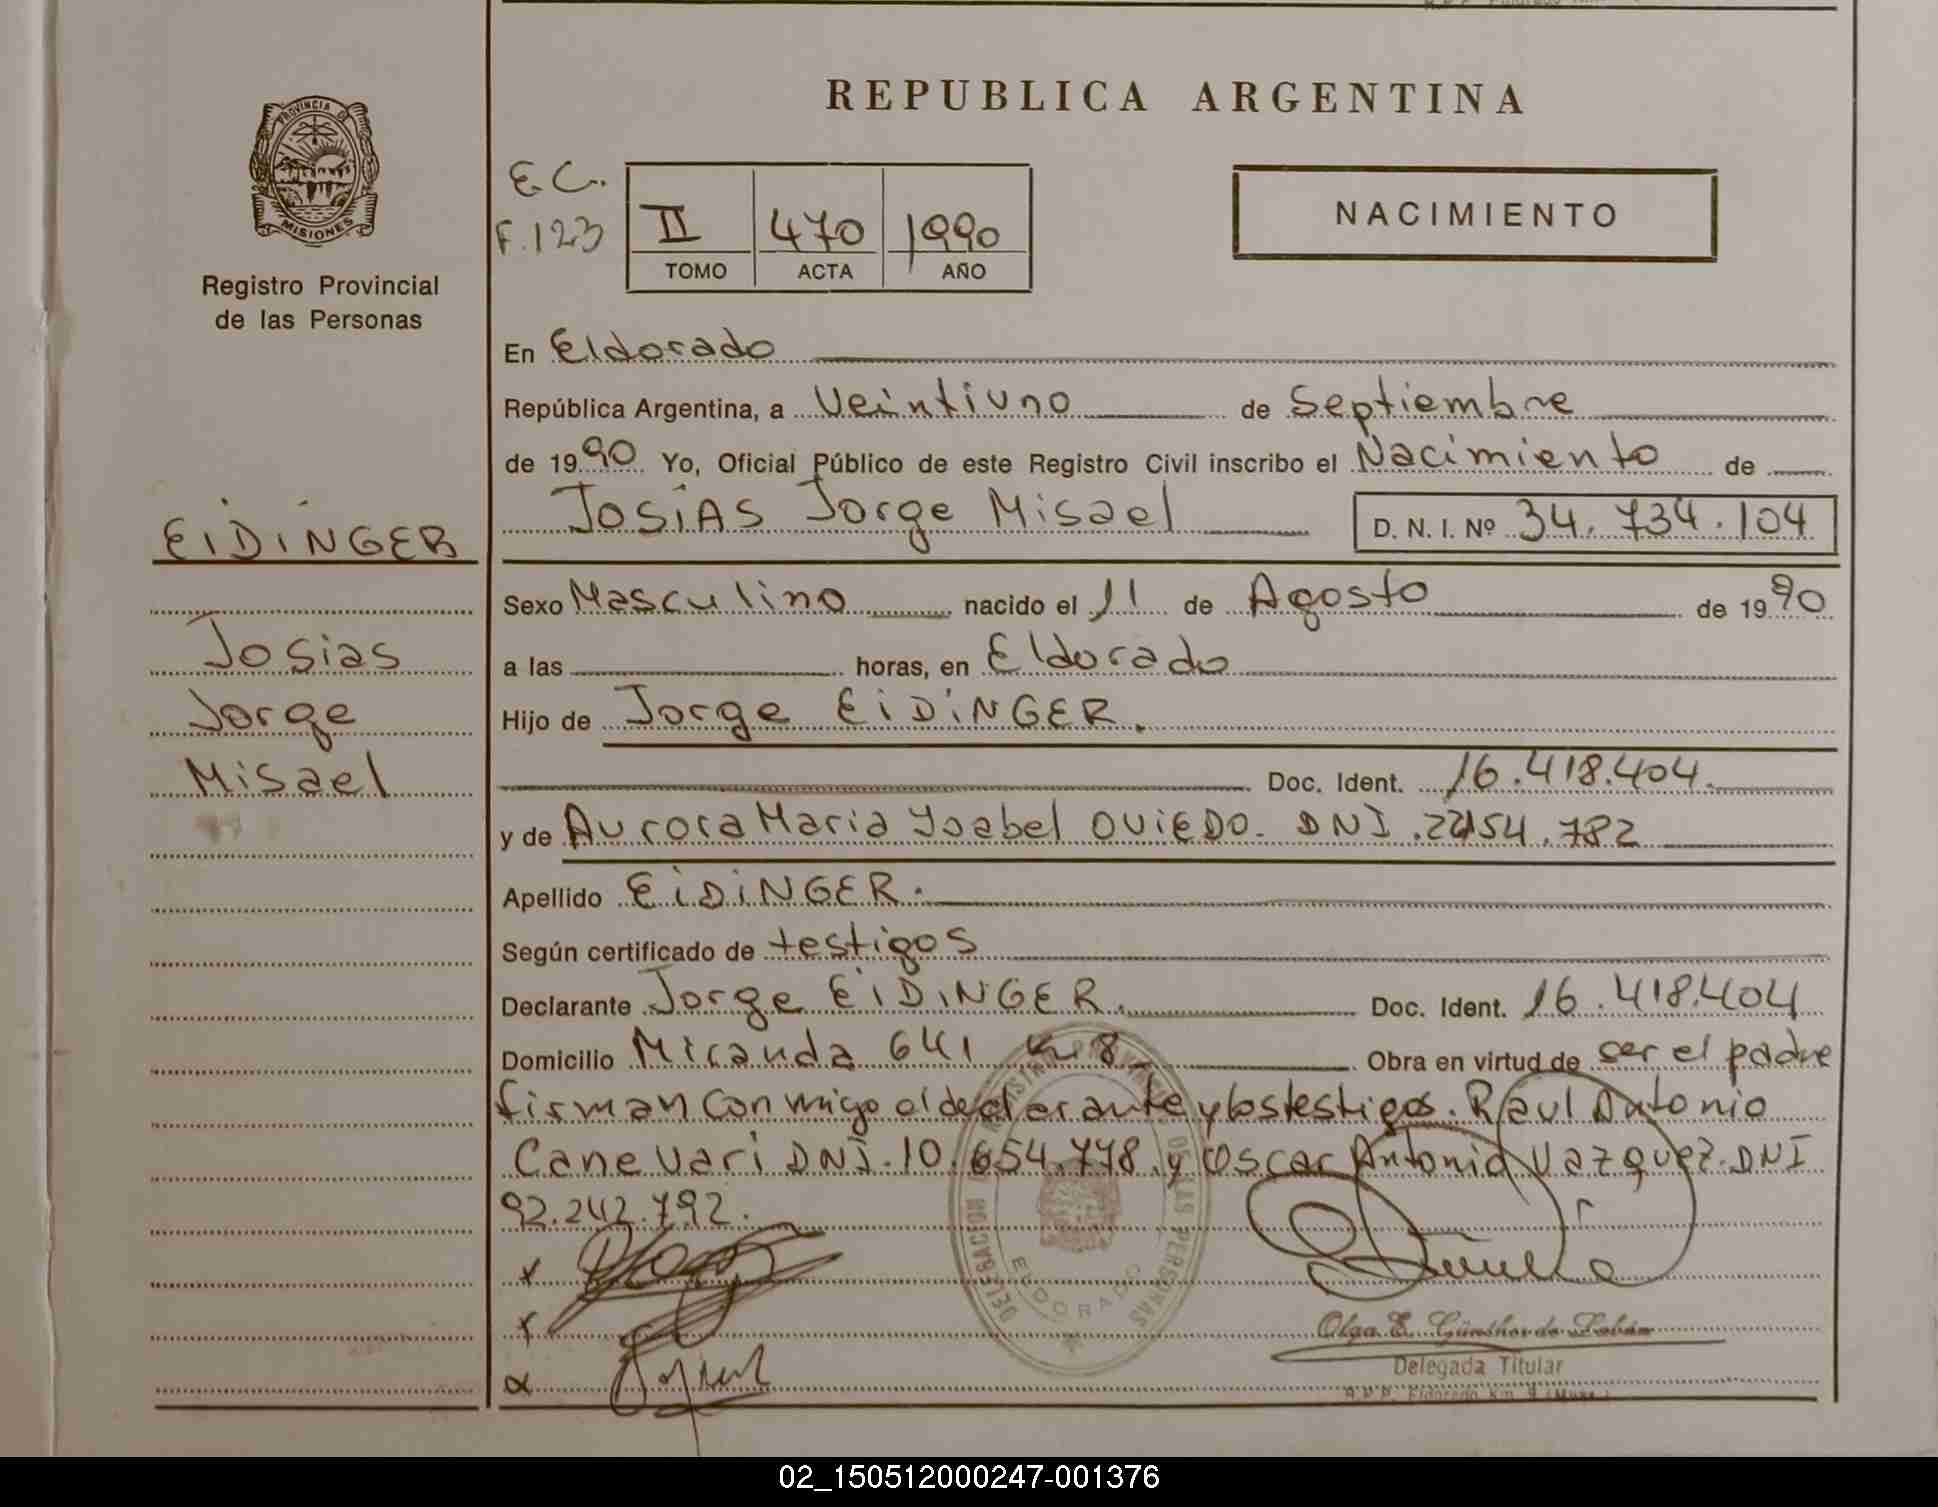 REPUBLICA ARGENTINA
PROVINCIA DE
MISIONES
Registro Provincial
de las Personas
E.C.
F.123
II 470 1990
TOMO ACTA AÑO
NACIMIENTO
En Eldorado
República Argentina, a Veintiuno de Septiembre
de 1990 Yo, Oficial Público de este Registro Civil inscribo el Nacimiento de
JOSIAS Jorge Misael D. N. I. Nº 34.734.104
EIDINGER
Josias
Jorge
Misael
Sexo Masculino nacido el 11 de Agosto de 1990
a las horas, en Eldorado
Hijo de Jorge EIDINGER.
Doc. Ident. 16.418.404.
y de Aurora Maria Ysabel OVIEDO. DNI. 782
Apellido EIDINGER.
Según certificado de testigos
Declarante Jorge EIDINGER. Doc. Ident. 16.418.404
Domicilio Miranda 641 Obra en virtud de ser el padre
firman conmigo el declarante y los testigos. Raul Antonio
Canevari DNI. 10.654.778. y Oscar Antonio Vazquez. DNI
92.242.792.
ELDORADO
Olga E. Günther de
Delegada Titular
R.P.P. Eldorado Km. 9
02_150512000247-001376